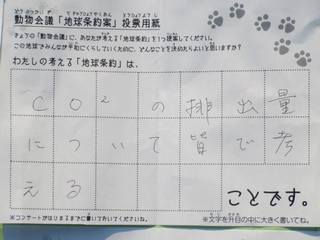 動物会議「地球条約案」投票用紙
きょうの「動物会議」に、あなたが考える「地球条約」を1つ提案してください。
この地球でみんなが平和にくらしていくために、どんなことを決めたらよいと思いますか?
わたしの考える「地球条約」は、
CO²の排出量
について皆で考
える
ことです。
※コンサートがはじまるまでに書いておいてくださいね。
※文字を升目の中に大きく書いてね。